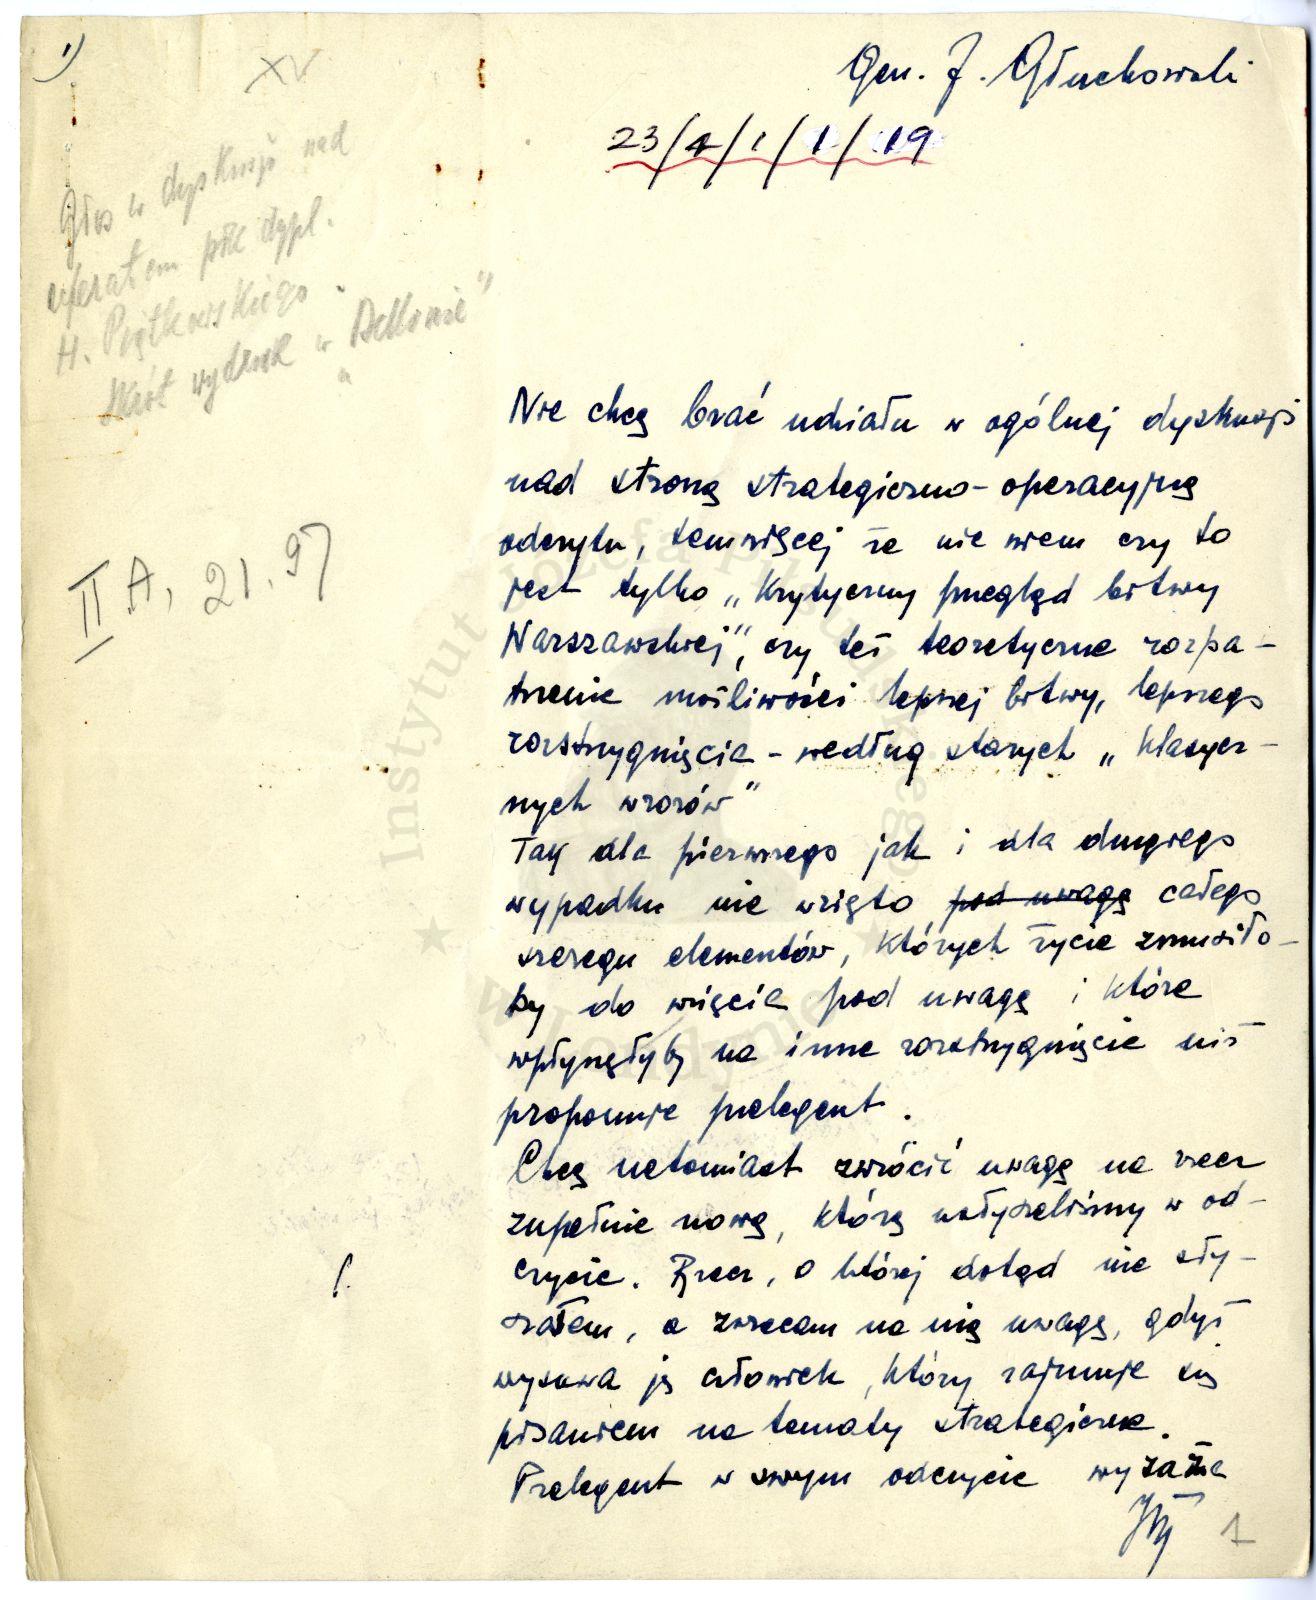 1)
XV
Gen. J. Głuchowski
23/4/1/1/19
Głos w dyskusji nad
referatem płk dypl.
H. Piątkowskiego.
Skrót wydruk w "Bellonie"
II A, 21.97
Nie chcę brać udziału w ogólnej dyskusji
nad stroną strategiczno-operacyjną
odczytu, temwięcej że nie wiem czy to
jest tylko „Krytyczny przegląd bitwy
Warszawskiej", czy też teoretyczne rozpa-
trzenie możliwości lepszej bitwy, lepszego
rozstrzygnięcia - według starych „klasycz-
nych wzorów"
Tak dla pierwszego jak i dla drugiego
wypadku nie wzięto pod uwagę całego
szeregu elementów, których życie zmusiło-
by do wzięcia pod uwagę i które
wpłynęłyby na inne rozstrzygnięcie niż
proponuje prelegent.
Chcę natomiast zwrócić uwagę na rzecz
zupełnie nową, którą usłyszeliśmy w od-
czycie. Rzecz, o której dotąd nie sły-
szałem, a zwracam na nią uwagę, gdyż
wysuwa ją człowiek, który zajmuje się
pisaniem na tematy strategiczne.
Prelegent w swym odczycie wyraża
1
Instytut Józefa Piłsudskiego
w Londynie